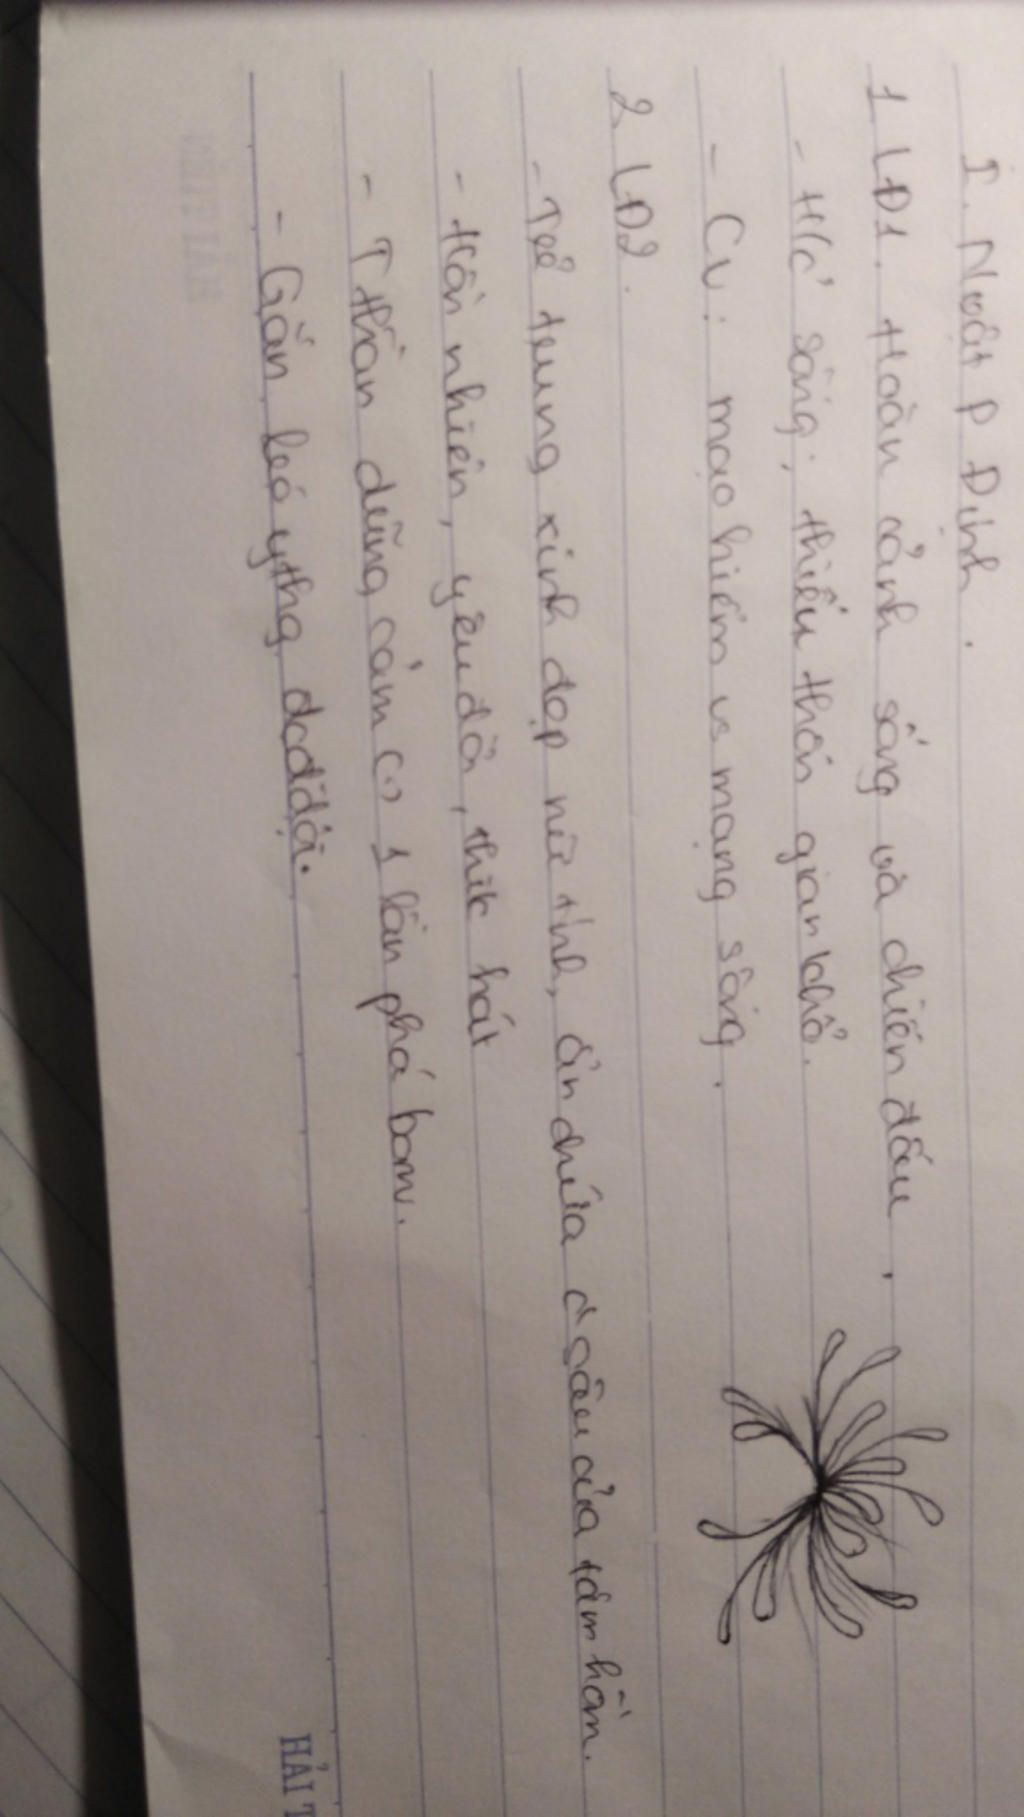 I. Nvật P Định.
1 LĐ1. Hoàn cảnh sống và chiến đấu.
- H/c' sống: thiếu thốn gian khổ.
- CV: mạo hiểm vs mạng sống.
2 LĐ2.
- Trẻ trung xinh đẹp nữ tính, ẩn chứa chsâu của tâm hồn.
- Hồn nhiên, yêu đời, thik hát
- T thần dũng cảm 1 lần phá bom.
- Gắn bó ythg đ đội.
HẢI T